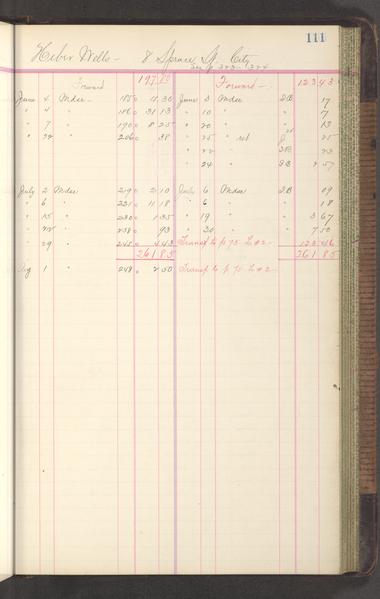 111
Heber Wells - 8 Spruce St. City
See p 323-1324
Forward 197 80 Forward 123 43
June 4 Mdse - 185 11 30 June 3 Mdse SB 17
" 4 " 186 31 13 " 10 " " 7
" 7 " 190 8 25 " 20 " " 13
" 22 " 206 38 " 25 " ret J 25
" 22 " SB 23
" 24 " SB 2 57
July 2 Mdse 219 2 10 July 6 Mdse SB 09
" 6 " 221 11 18 " 6 " " 18
" 15 " 230 1 35 " 19 " " 3 67
" 22 " 238 93 " 30 " " 7 50
" 29 " 245 4 43 Transf to p 75 L #2 - 123 46
261 85 261 85
Aug 1 " 248 2 50 Transf to p 75 L #2 -